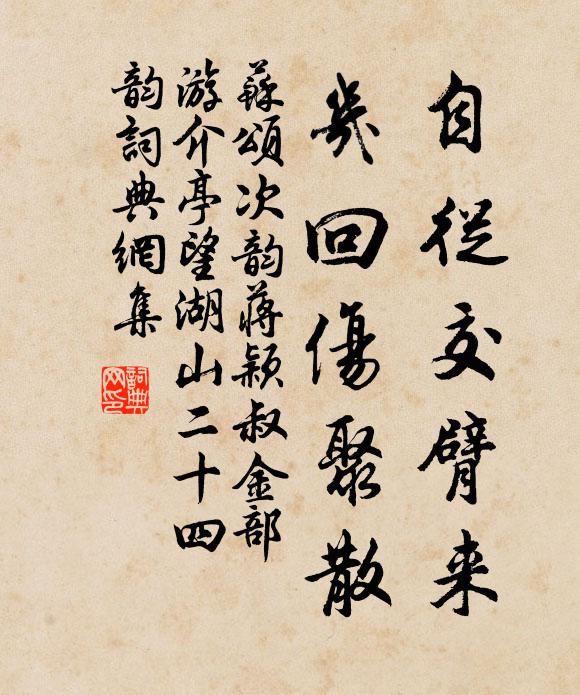 自從交臂来
幾回傷聚散
蘇頌次韵蔣穎叔金部
游介亭望湖山二十四
韵詞典網集
詞典
网印